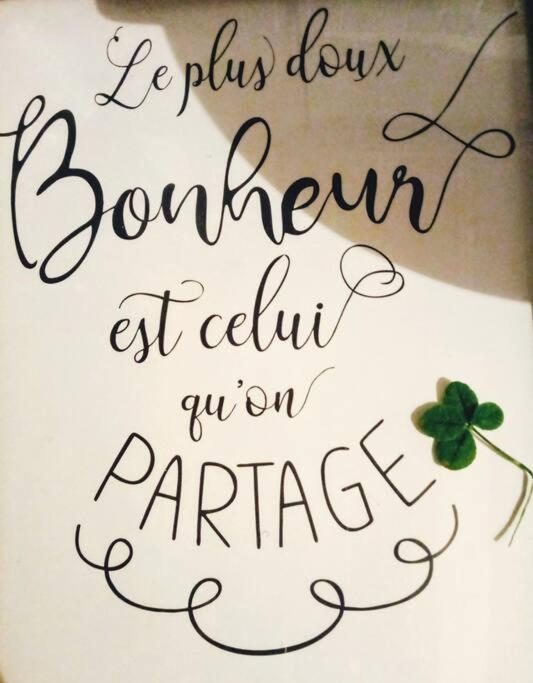 Le plus doux
Bonheur
est celui
qu'on
PARTAGE